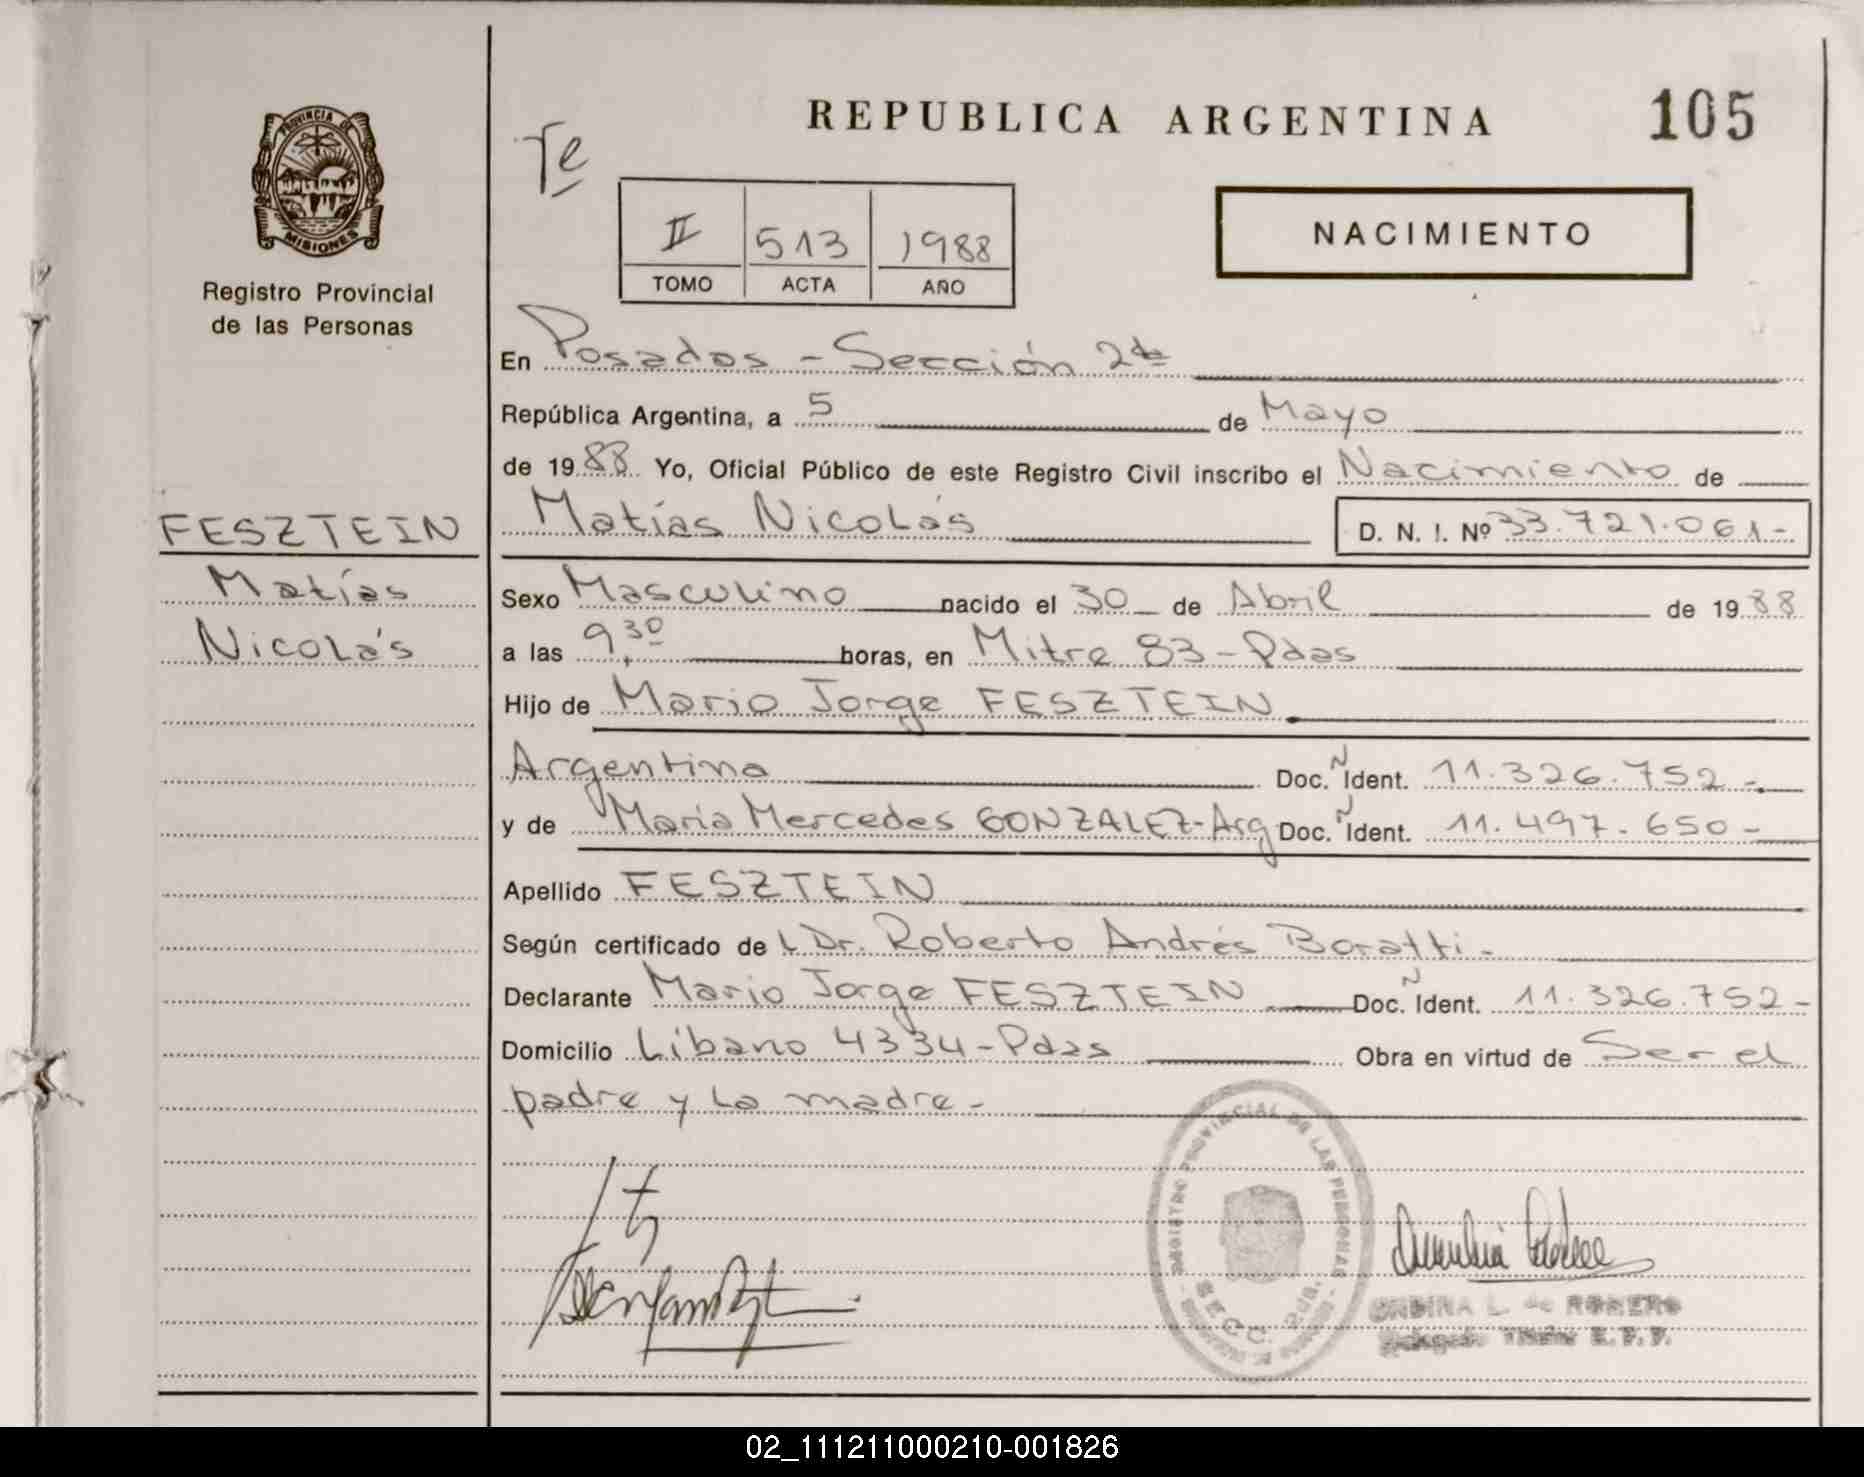 REPUBLICA ARGENTINA
105
Te
PROVINCIA DE
MISIONES
Registro Provincial
de las Personas
II 513 1988
TOMO ACTA AÑO
NACIMIENTO
En Posadas - Sección 2da
República Argentina, a 5 de Mayo
de 1988 Yo, Oficial Público de este Registro Civil inscribo el Nacimiento de
FESZTEIN
Matías
Nicolás
Matías Nicolás D. N. I. Nº 33.721.061-
Sexo Masculino nacido el 30 de Abril de 1988
a las 9,30 horas, en Mitre 83-Pdas
Hijo de Mario Jorge FESZTEIN
Argentina Doc. Ñ Ident. 11.326.752-
y de María Mercedes GONZALEZ-Arg Doc. Ñ Ident. 11.497.650-
Apellido FESZTEIN
Según certificado de L Dr. Roberto Andrés Boratti-
Declarante Mario Jorge FESZTEIN Doc. Ñ Ident. 11.326.752-
Domicilio Líbano 4334-Pdas Obra en virtud de Ser el
padre y la madre-
REGISTRO PROVINCIAL DE LAS PERSONAS
SECC.
ONDINA L. de ROMERO
02_111211000210-001826